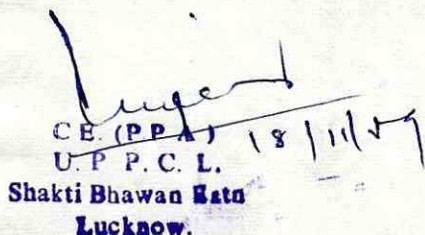 C E. (P P A) 18/11/09
U. P P. C. L.
Shakti Bhawan
Lucknow.